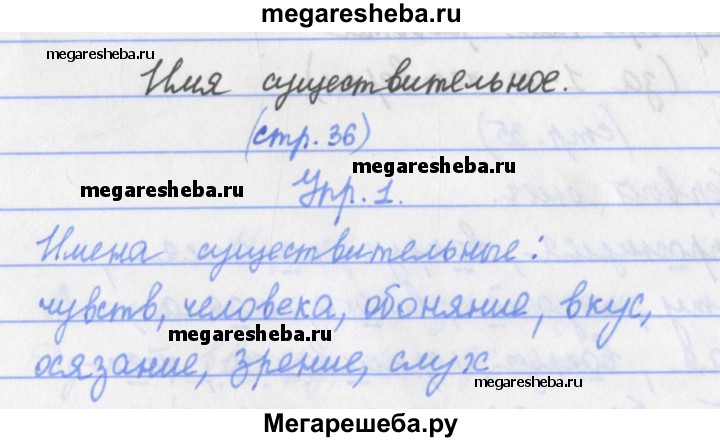 megaresheba.ru
megaresheba.ru
Имя существительное.
(стр. 36)
megaresheba.ru
megaresheba.ru
Упр. 1.
Имена существительные:
чувств, человека, обоняние, вкус,
megaresheba.ru
осязание, зрение, слух
megaresheba.ru
Мегарешеба.ру